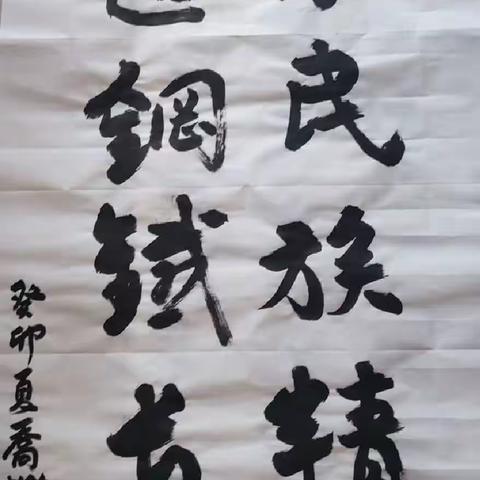 民族精
鋼鐵长
癸卯夏喬